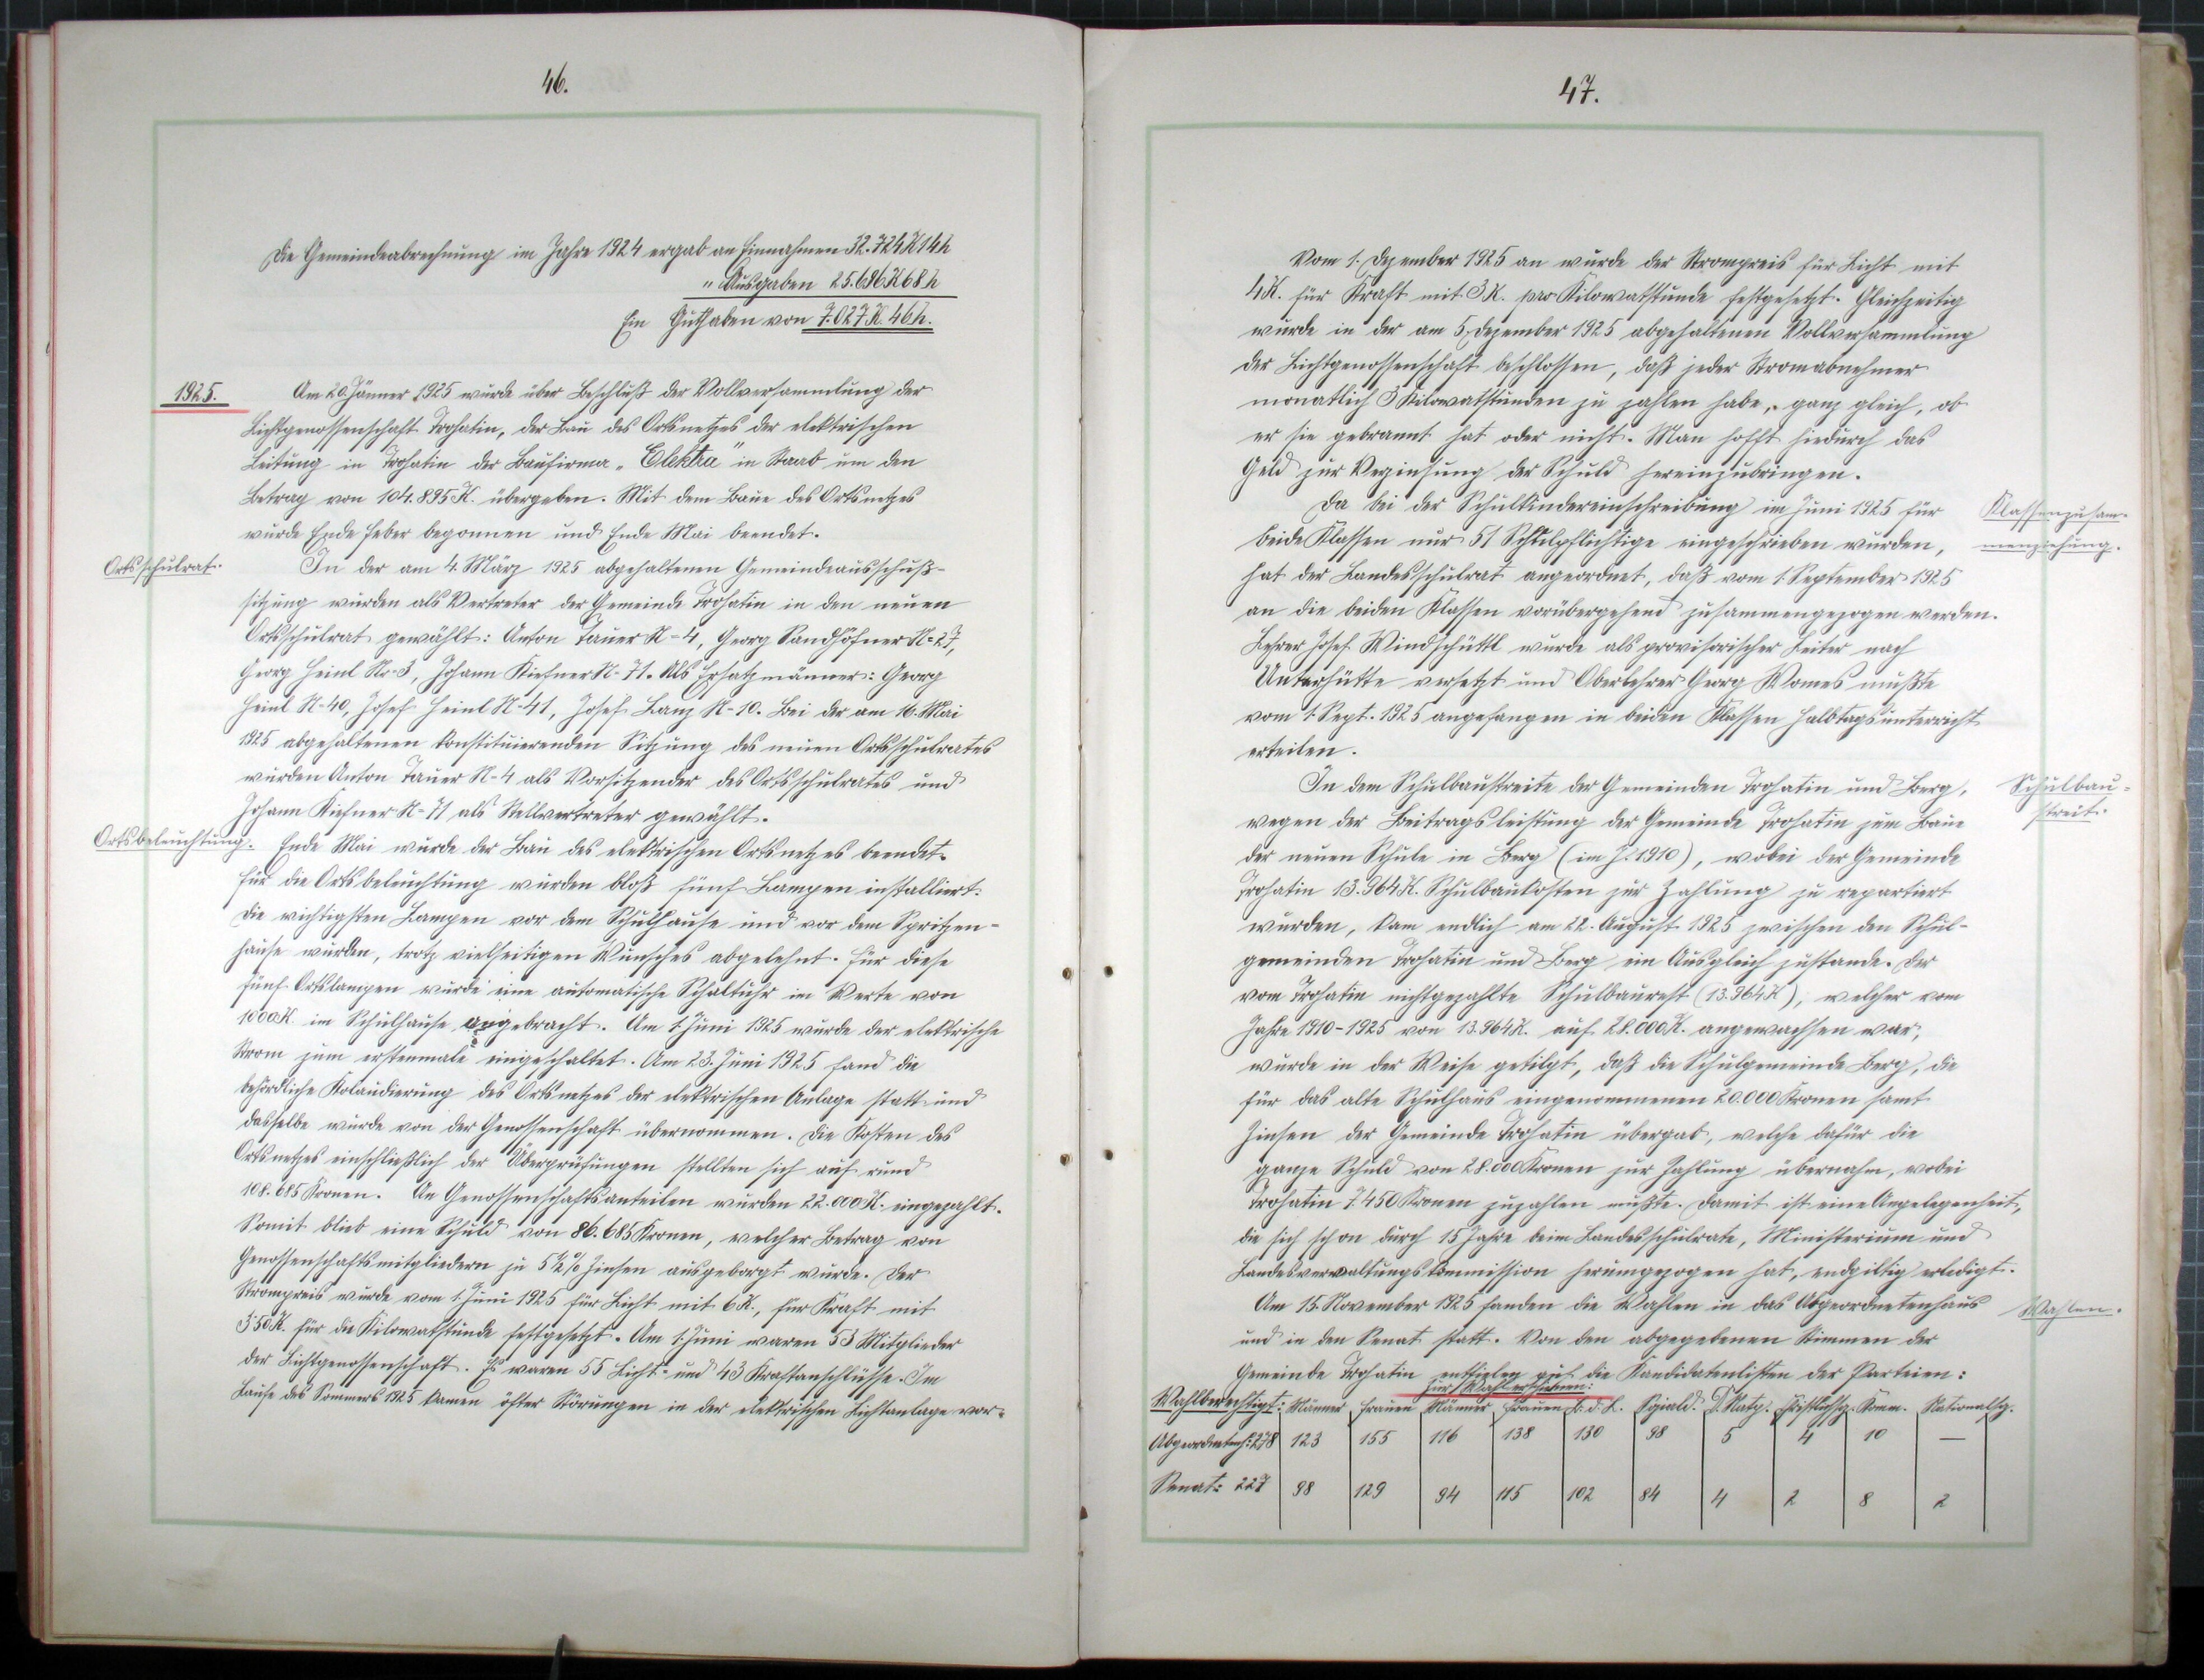 46.
Die Gemeindeabrechnung im Jahre 1924 ergab an Einnahmen 32.724K14h
" Ausgaben 25.696K68h
Ein Guthaben von 7.027K.46h.
1925.
Am 20. Jänner 1925 wurde über Beschluß der Vollversammlung der
Lichtgenossenschaft Trohatin, der Bau des Ortsnetzes der elektrischen
Leitung in Trohatin der Baufirma „Elektra" in Staab um den
Betrag von 104.895K. übergeben. Mit dem Baue des Ortsnetzes
wurde Ende Feber begonnen und Ende Mai beendet.
Ortsschulrat.
In der am 4. März 1925 abgehaltenen Gemeindeausschuß-
sitzung wurden als Vertreter der Gemeinde Trohatin in den neuen
Ortsschulrat gewählt: Anton Tauer N-4, Georg Sandhöfner N-27,
Georg Heinl Nr-3, Johann Kiefner N-71. Als Ersatzmänner: Georg
Heinl N-40, Josef Heinl N-41, Josef Lanz N-10. Bei der am 16. Mai
1925 abgehaltenen konstituierenden Sitzung des neuen Ortsschulrates
wurden Anton Tauer N-4 als Vorsitzender des Ortsschulrates und
Johann Kiefner N-71 als Stellvertreter gewählt.
Ortsbeleuchtung.
Ende Mai wurde der Bau des elektrischen Ortsnetzes beendet.
Für die Ortsbeleuchtung wurden bloß fünf Lampen installiert.
Die wichtigsten Lampen vor dem Schulhause und vor dem Spritzen-
hause wurden, trotz vielseitigen Wunsches abgelehnt. Für diese
fünf Ortslampen wurde eine automatische Schaltuhr im Werte von
1000K. im Schulhause angebracht. Am 1. Juni 1925 wurde der elektrische
Strom zum erstenmale eingeschaltet. Am 23. Juni 1925 fand die
behördliche Kolaudierung des Ortsnetzes der elektrischen Anlage statt und
dasselbe wurde von der Genossenschaft übernommen. Die Kosten des
Ortsnetzes einschließlich der Überprüfungen stellten sich auf rund
108.685 Kronen. An Genossenschaftsanteilen wurden 22.000K. eingezahlt.
Somit blieb eine Schuld von 86.685 Kronen, welcher Betrag von
Genossenschaftsmitgliedern zu 5½% Zinsen ausgeborgt wurde. Der
Strompreis wurde vom 1. Juni 1925 für Licht mit 6K., für Kraft mit
3·50K. für die Kilowatstunde festgesetzt. Am 1. Juni waren 53 Mitglieder
der Lichtgenossenschaft. Es waren 55 Licht- und 43 Kraftanschlüsse. Im
Laufe des Sommers 1925 kamen öfter Störungen in der elektrischen Lichtanlage vor.
47.
Vom 1. Dezember 1925 an wurde der Strompreis für Licht mit
4K. für Kraft mit 3K. pro Kilowatstunde festgesetzt. Gleichzeitig
wurde in der am 5. Dezember 1925 abgehaltenen Vollversammlung
der Lichtgenossenschaft beschlossen, daß jeder Stromabnehmer
monatlich 3 Kilowatstunden zu zahlen habe, ganz gleich, ob
er sie gebrannt hat oder nicht. Man hofft hiedurch das
Geld zur Verzinsung der Schuld hereinzubringen.
Da bei der Schulkindereinschreibung im Juni 1925 für
Klassenzusam-
beide Klassen nur 51 Schulpflichtige eingeschrieben wurden,
menziehung.
hat der Landesschulrat angeordnet, daß vom 1. September 1925
an die beiden Klassen vorübergehend zusammengezogen werden.
Lehrer Josef Windschüttl wurde als provisorischer Leiter nach
Unterhütte versetzt und Oberlehrer Georg Womes mußte
vom 1. Sept. 1925 angefangen in beiden Klassen Halbtagsunterricht
erteilen.
In dem Schulbaustreite der Gemeinden Trohatin und Berg,
Schulbau-
wegen der Beitragsleistung der Gemeinde Trohatin zum Baue
streit.
der neuen Schule in Berg (im J. 1910), wobei der Gemeinde
Trohatin 13.964K. Schulbaukosten zur Zahlung zu repartiert
wurden, kam endlich am 22. August 1925 zwischen den Schul-
gemeinden Trohatin und Berg ein Ausgleich zustande. Der
vom Trohatin nichtgezahlte Schulbaurest (13.964K), welcher vom
Jahre 1910-1925 von 13.964K. auf 28.000K. angewachsen war,
wurde in der Weise getilgt, daß die Schulgemeinde Berg, die
für das alte Schulhaus eingenommenen 20.000 Kronen samt
Zinsen der Gemeinde Trohatin übergab, welche dafür die
ganze Schuld von 28.000 Kronen zur Zahlung übernahm, wobei
Trohatin 7.450 Kronen zuzahlen mußte. Damit ist eine Angelegenheit,
die sich schon durch 15 Jahre beim Landesschulrate, Ministerium und
Landesverwaltungskommission herumgezogen hat, endgiltig erledigt.
Am 15. November 1925 fanden die Wahlen in das Abgeordnetenhaus
Wahlen.
und in den Senat statt. Von den abgegebenen Stimmen der
Gemeinde Trohatin entfielen auf die Kandidatenlisten der Parteien:
Zur Wahl erschienen:
Wahlberechtigt: Männer Frauen Männer Frauen B.d.L. Soziald. D.Natp. Christlichs. Komm. Nationalsz.
Abgeordnetenh: 278 123 155 116 138 130 98 5 4 10 —
Senat: 227 98 129 94 115 102 84 4 2 8 2